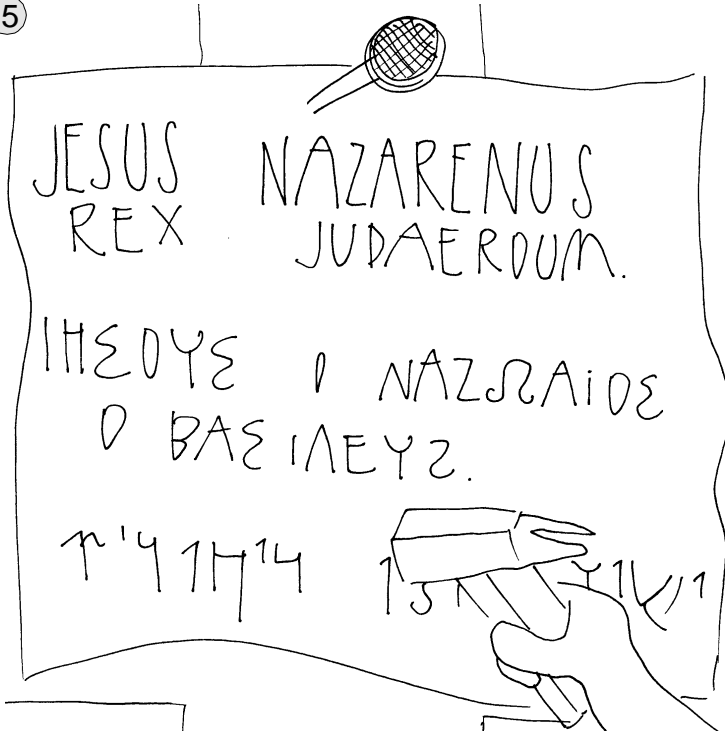 5
JESUS NAZARENUS
REX JUDAEROUM.
ΙΗΣΟΥΣ Ο ΝΑΖΩΑΙΟΣ
Ο ΒΑΣΙΛΕΥΣ.